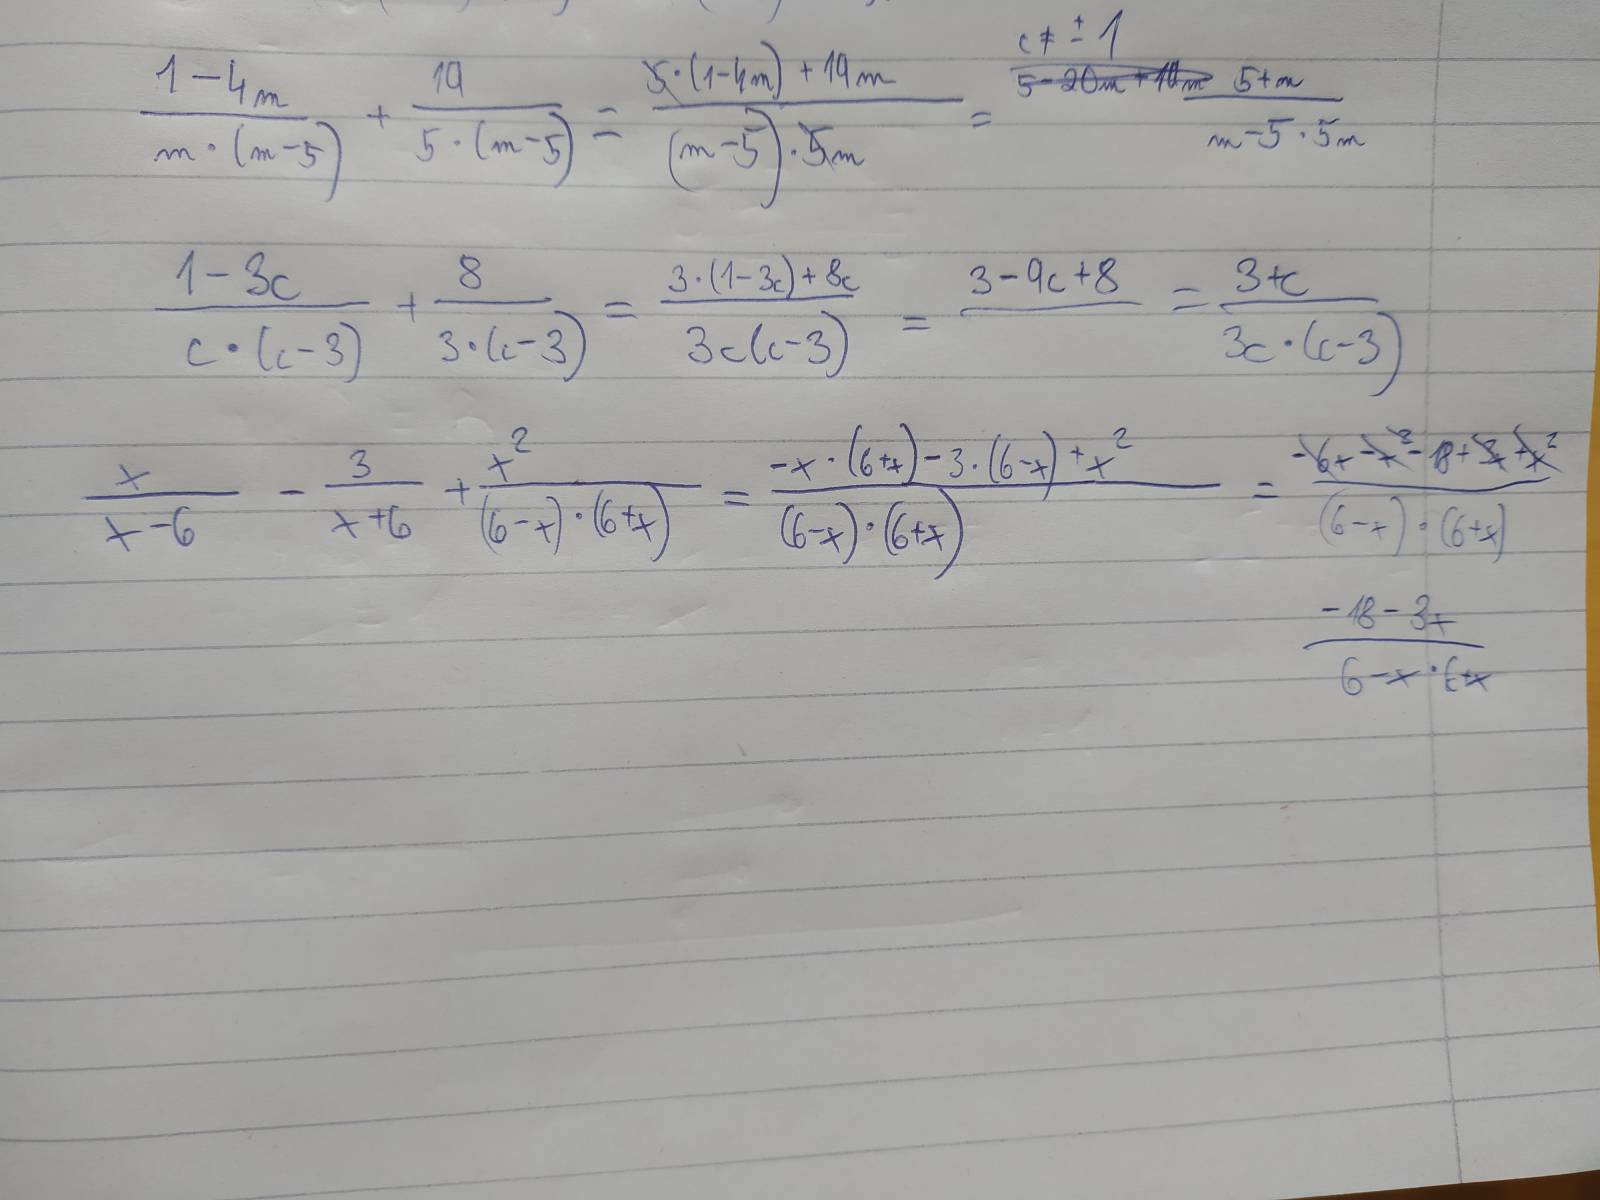 c ≠ ± 1
(1-4m)/(m·(m-5)) + 19/(5·(m-5)) = (5·(1-4m)+19m)/((m-5)·5m) = (5+m)/(m-5·5m)
(1-3c)/(c·(c-3)) + 8/(3·(c-3)) = (3·(1-3c)+8c)/(3c(c-3)) = 3-9c+8 = (3+c)/(3c·(c-3))
x/(x-6) - 3/(x+6) + x²/((6-x)·(6+x)) = (-x·(6+x)-3·(6-x)+x²)/((6-x)·(6+x)) = (-6x-x²-18+3x+x²)/((6-x)·(6+x))
(-18-3x)/(6-x·6+x)